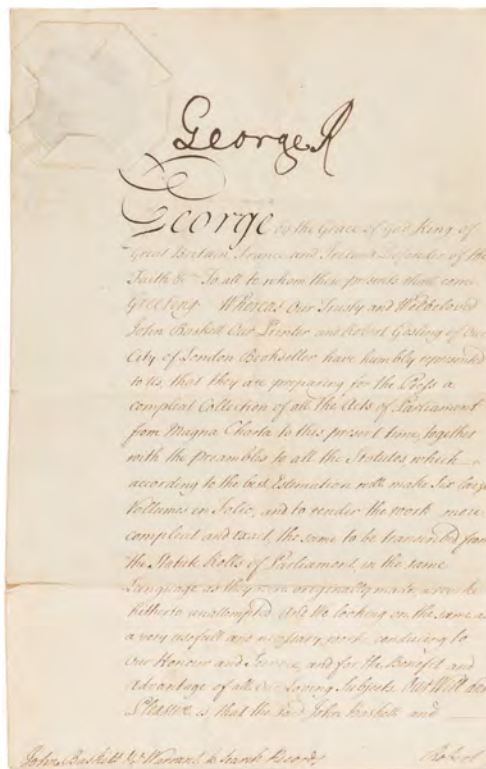 George R
George by the Grace of God King of
Great Britain, France and Ireland Defender of the
Faith &c To all to whom these presents shall come
Greeting. Whereas Our Trusty and Welbeloved
John Baskett Our Printer and Robert Gosling of Our
City of London Bookseller have humbly represented
to Us, that they are preparing for the Press a
compleat Collection of all the Acts of Parliament
from Magna Charta to this present time, together
with the preambles to all the Statutes which
according to the best Estimation will make Six large
Vollumes in Folio, and to render the work more
compleat and exact, the same to be transcribed from
the Statute Rolls of Parliament, in the same
Language as they were originally made, a work
hitherto unattempted And We looking on the same as
a very usefull and necessary work, conducing to
Our Honour and Service, and for the Benefit and
advantage of all Our Loving Subjects. Our Will and
Pleasure is that the said John Baskett and
John Baskett Warrant to search Records
Robert